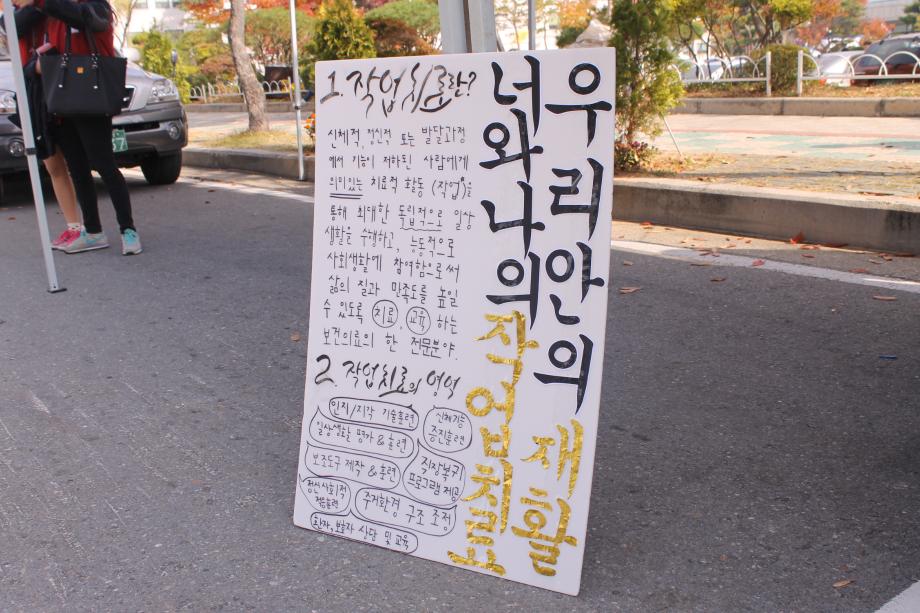 1. 작업치료란?
신체적, 정신적 또는 발달과정
에서 기능이 저하된 사람에게
의미있는 치료적 활동 (작업)을
통해 최대한 독립적으로 일상
생활을 수행하고, 능동적으로
사회생활에 참여함으로써
삶의 질과 만족도를 높일
수 있도록 치료, 교육 하는
보건의료의 한 전문분야.
2. 작업치료의 영역
인지/지각 기술훈련
신체기능
증진훈련
일상생활 평가 & 훈련
보조도구 제작 & 훈련
직장복귀
프로그램 제공
정신사회적
적응훈련
주거환경 구조 조정
환자, 보호자 상담 및 교육
우리안의 재활
너와나의 작업치료
7